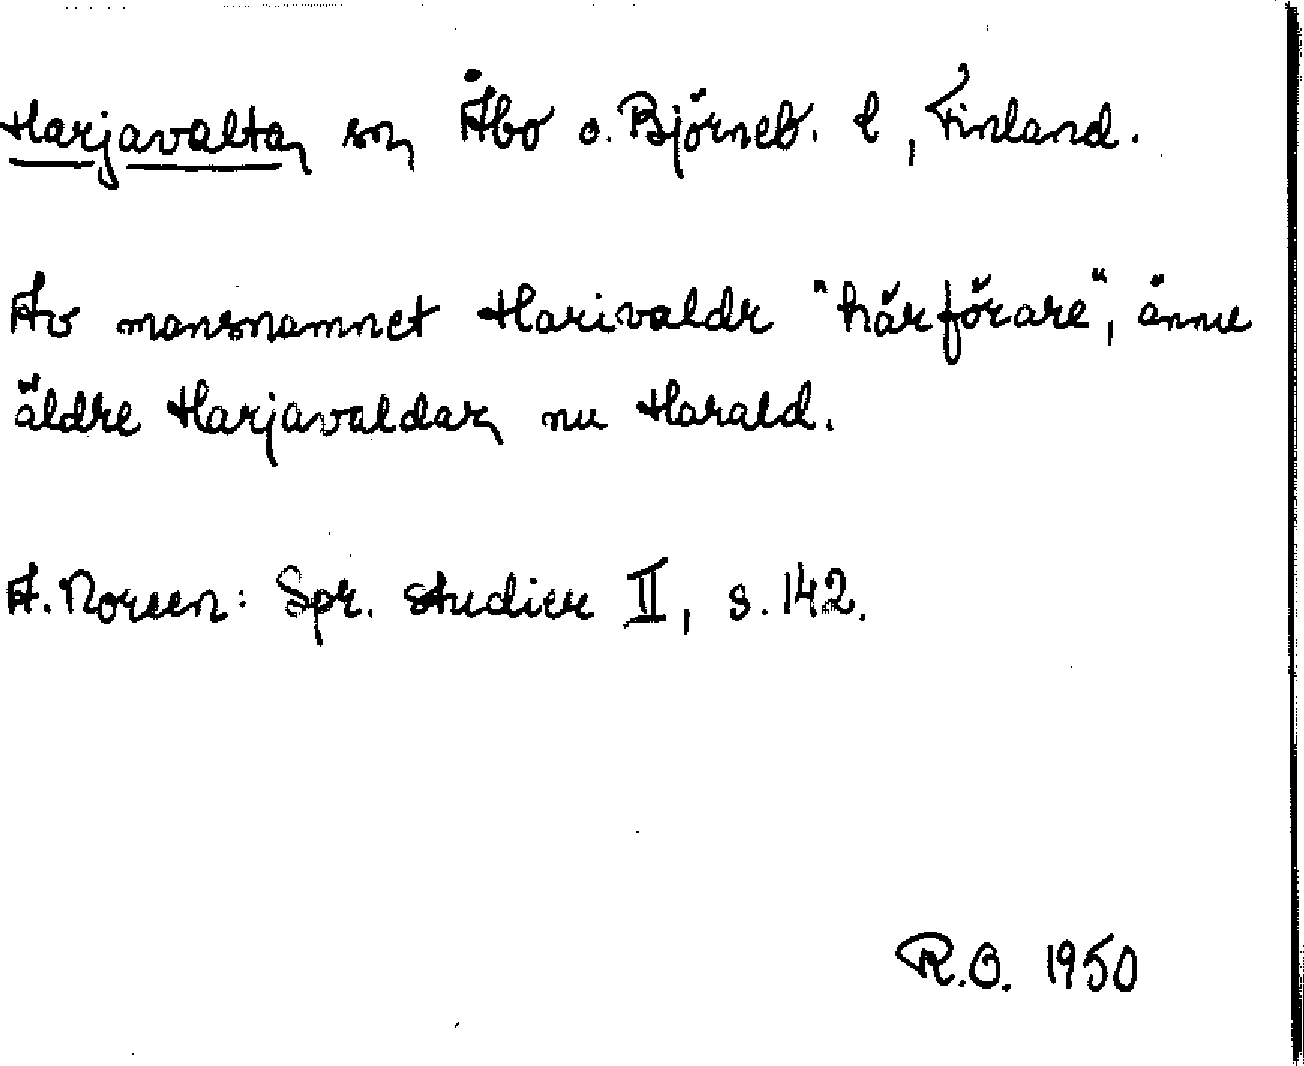 Harjavalta, sn, Åbo o. Björneb. l, Finland.
Av mansnamnet Harivaldr "härförare", ännu
äldre Harjavaldar, nu Harald.
A. Noreen: Spr. studier II, s. 142.
R.O. 1950